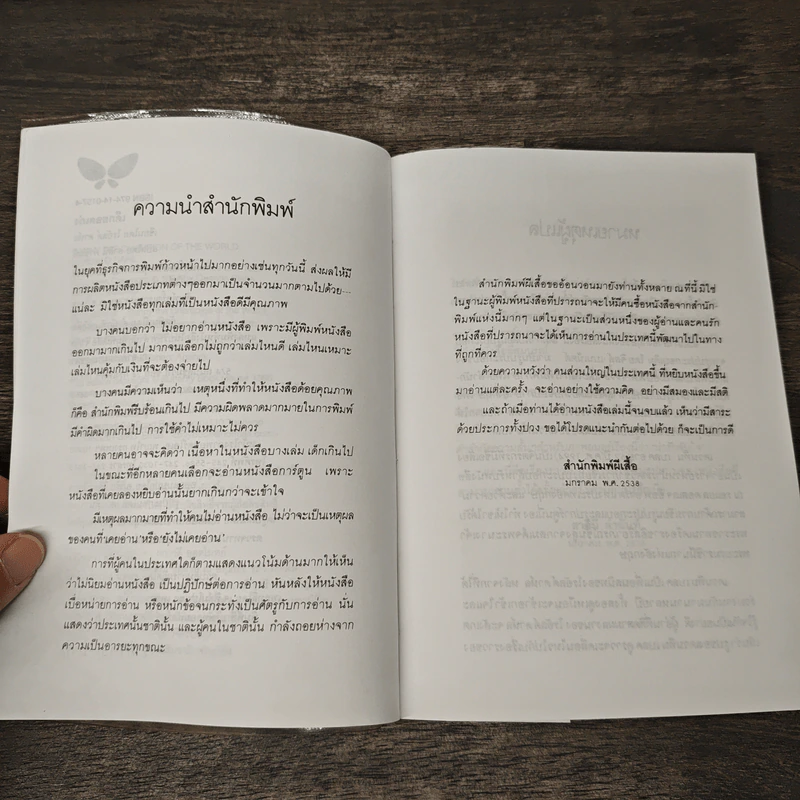 ความนำสำนักพิมพ์
ในยุคที่ธุรกิจการพิมพ์ก้าวหน้าไปมากอย่างเช่นทุกวันนี้ ส่งผลให้มี
การผลิตหนังสือประเภทต่างๆออกมาเป็นจำนวนมากตามไปด้วย...
แน่ละ มิใช่หนังสือทุกเล่มที่เป็นหนังสือดีมีคุณภาพ
บางคนบอกว่า ไม่อยากอ่านหนังสือ เพราะมีผู้พิมพ์หนังสือ
ออกมามากเกินไป มากจนเลือกไม่ถูกว่าเล่มไหนดี เล่มไหนเหมาะ
เล่มไหนคุ้มกับเงินที่จะต้องจ่ายไป
บางคนมีความเห็นว่า เหตุหนึ่งที่ทำให้หนังสือด้อยคุณภาพ
ก็คือ สำนักพิมพ์รีบร้อนเกินไป มีความผิดพลาดมากมายในการพิมพ์
มีคำผิดมากเกินไป การใช้คำไม่เหมาะไม่ควร
หลายคนอาจจะคิดว่า เนื้อหาในหนังสือบางเล่ม เด็กเกินไป
ในขณะที่อีกหลายคนเลือกจะอ่านหนังสือการ์ตูน เพราะ
หนังสือที่เคยลองหยิบอ่านนั้นยากเกินกว่าจะเข้าใจ
มีเหตุผลมากมายที่ทำให้คนไม่อ่านหนังสือ ไม่ว่าจะเป็นเหตุผล
ของคนที่'เคยอ่าน'หรือ'ยังไม่เคยอ่าน'
การที่ผู้คนในประเทศใดก็ตามแสดงแนวโน้มด้านมากให้เห็น
ว่าไม่นิยมอ่านหนังสือ เป็นปฏิปักษ์ต่อการอ่าน หันหลังให้หนังสือ
เบื่อหน่ายการอ่าน หรือหนักข้อจนกระทั่งเป็นศัตรูกับการอ่าน นั่น
แสดงว่าประเทศนั้นชาตินั้น และผู้คนในชาตินั้น กำลังถอยห่างจาก
ความเป็นอารยะทุกขณะ
สำนักพิมพ์ผีเสื้อขออ้อนวอนมายังท่านทั้งหลาย ณ ที่นี้ มิใช่
ในฐานะผู้พิมพ์หนังสือที่ปรารถนาจะให้มีคนซื้อหนังสือจากสำนัก
พิมพ์แห่งนี้มากๆ แต่ในฐานะเป็นส่วนหนึ่งของผู้อ่านและคนรัก
หนังสือที่ปรารถนาจะได้เห็นการอ่านในประเทศนี้พัฒนาไปในทาง
ที่ถูกที่ควร
ด้วยความหวังว่า คนส่วนใหญ่ในประเทศนี้ ที่หยิบหนังสือขึ้น
มาอ่านแต่ละครั้ง จะอ่านอย่างใช้ความคิด อย่างมีสมองและมีสติ
และถ้าเมื่อท่านได้อ่านหนังสือเล่มนี้จนจบแล้ว เห็นว่ามีสาระ
ด้วยประการทั้งปวง ขอได้โปรดแนะนำกันต่อไปด้วย ก็จะเป็นการดี
สำนักพิมพ์ผีเสื้อ
มกราคม พ.ศ. 2538